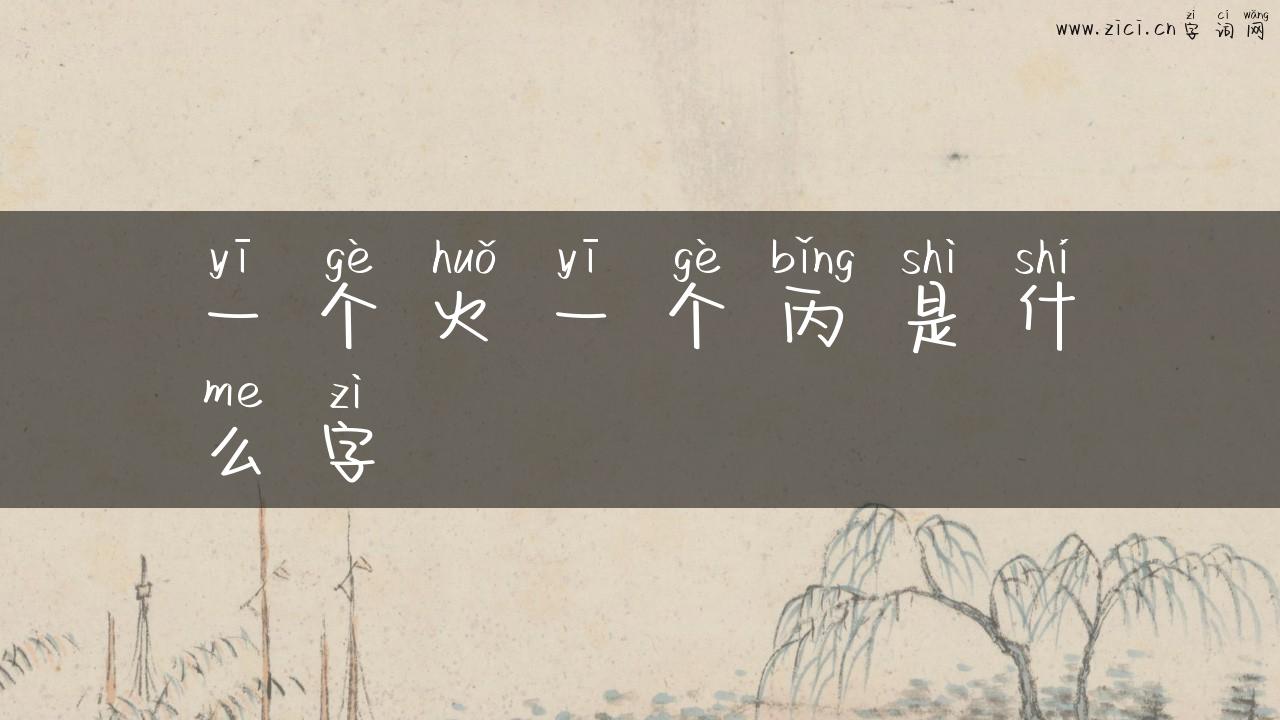 zì cí wǎng
www.zici.cn 字 词 网
yī gè huǒ yī gè bǐng shì shí
一 个 火 一 个 丙 是 什
me zì
么 字